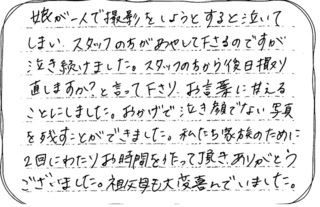 娘が一人で撮影をしようとすると泣いて
しまい スタッフの方があやして下さるのですが
泣き続けました。スタッフの方から後日撮り
直しますか?と言って下さり、お言葉に甘える
ことにしました。おかげで泣き顔でない写真
を残すことができました。私たち家族のために
2回にわたりお時間を作って頂きありがとう
ございました。祖父母も大変喜んでいました。